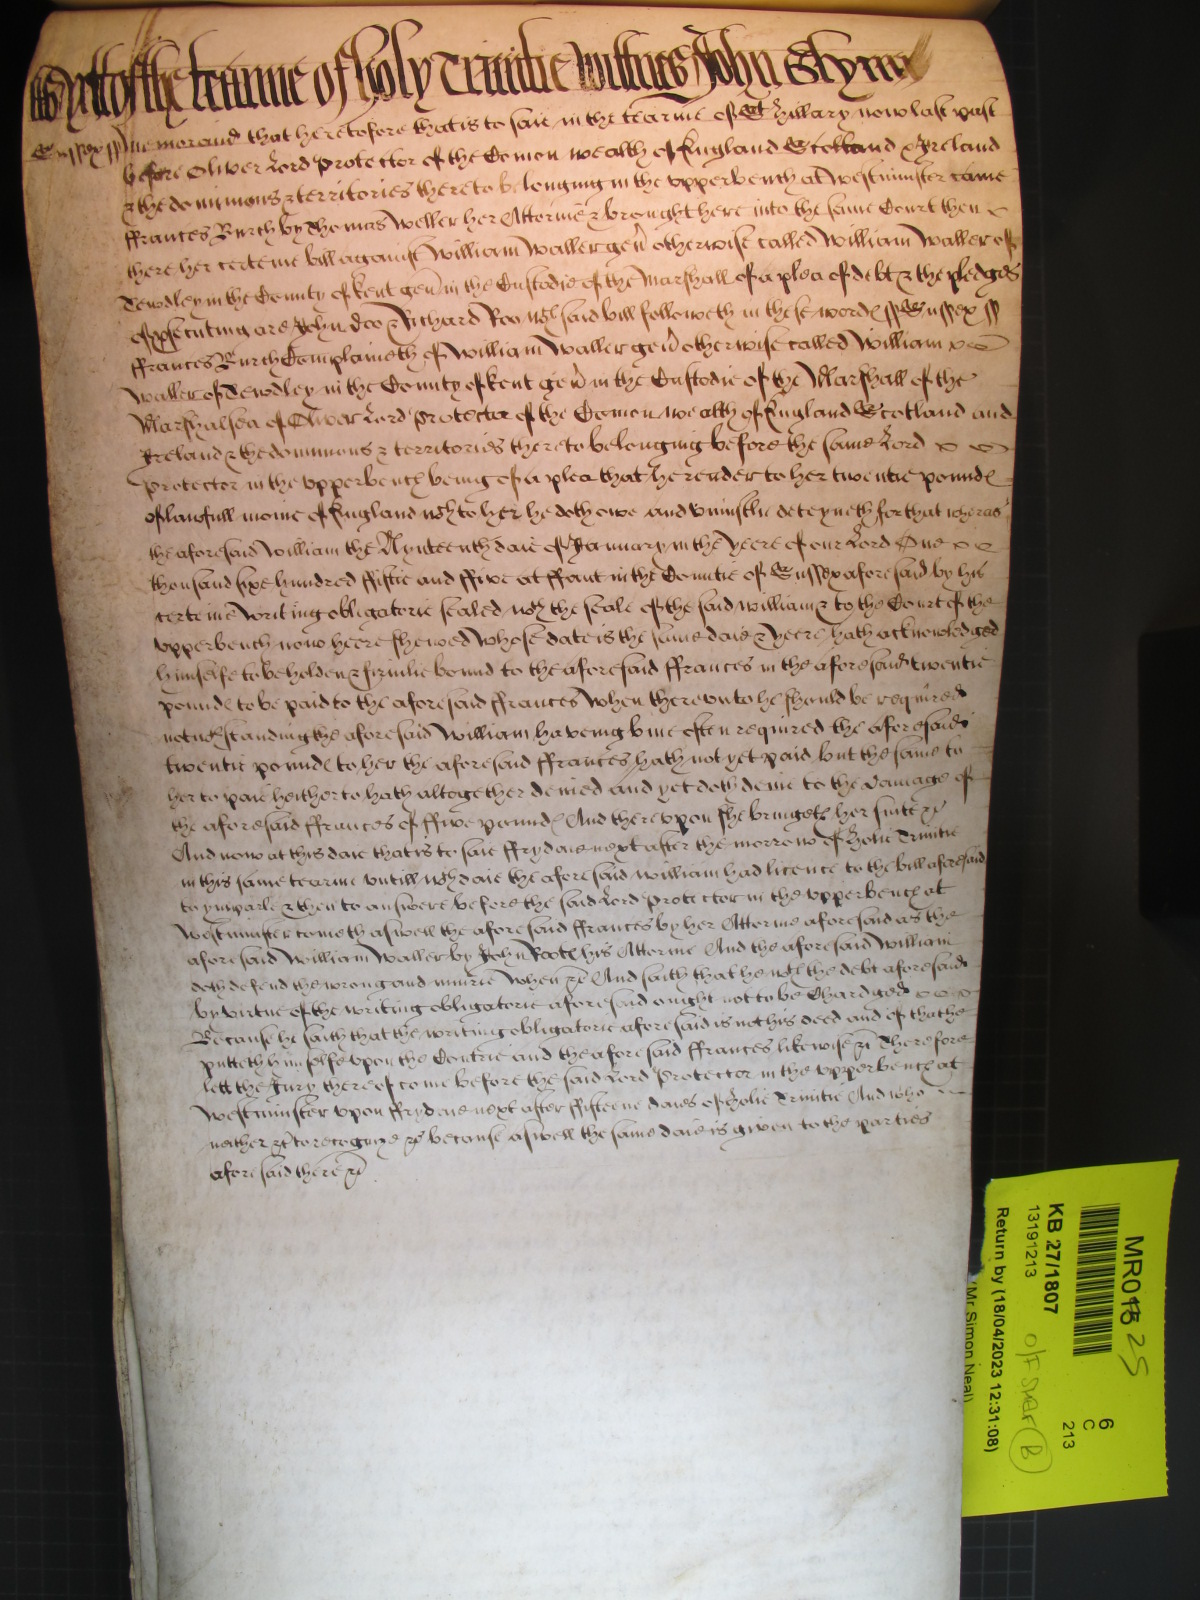 yett of the tearme of holy Trinitie wittnes John Glynn
Sussex ss Memorand that heretofore that is to saie in the tearme of St Hillary now last past
before Oliver Lord Protector of the Comon wealth of England Scotland & Ireland
& the dominions & territories thereto belonging in the upper bench at Westminster came
ffrances Burch by Thomas Weller her Attorney & brought here into the same Court then x
there her certeine bill against William Waller gen otherwise called William Waller of
Dewdley in the County of Kent gen in the Custodie of the Marshall of a plea of debt & the pledges
of psecuting are John Doo & Richard Roo wch said bill followeth in these words ss Sussex ss
ffrances Burch Complaineth of William Waller gen otherwise called William x
Waller of Dewdley in the County of Kent gen in the Custodie of the Marshall of the
Marshalsea of Oliver Lord Protector of the Comon wealth of England Scotland and
Ireland & the dominions & territories thereto belonging before the same Lord x x
Protector in the upper bench being of a plea that he render to her twentie pounds
of lawfull monie of England wch to her he doth owe and uniustlie deteyneth for that wheras
the aforesaid William the Nynteenth daie of January in the yeere of our Lord One x x
thousand sixe hundred ffiftie and ffive at ffrant in the Countie of Sussex aforesaid by his
certeine writing obligatorie sealed wth the seale of the said William & to the Court of the
upper bench now heere shewed whose date is the same daie & yeere hath acknowledged
himselfe to be holden & firmlie bound to the aforesaid ffrances in the aforesaid twentie
pounds to be paid to the aforesaid ffrances when thereunto he should be required
notwthstanding the aforesaid William haveing bine often required the aforesaid
twentie pounds to her the aforesaid ffrances hath not yet paid but the same to
her to paie heitherto hath altogether denied and yet doth denie to the damage of
the aforesaid ffrances of ffive pounds And thereupon she bringeth her suite &c
And now at this daie that is to saie ffrydaie next after the morrow of Holie Trinitie
in this same tearme untill wch daie the aforesaid William had licence to the bill aforesaid
to ymparle & then to answere before the said Lord Protector in the upper bench at
Westminster cometh aswell the aforesaid ffrances by her Attorney aforesaid as the
aforesaid William Waller by John Roote his Attorney And the aforesaid William
doth defend the wrong and iniurie when &c And saith that he wth the debt aforesaid
by virtue of the writing obligatorie aforesaid ought not to be Chardged x x x
Because he saith that the writing obligatorie aforesaid is not his deed and of that he
putteth himselfe upon the Contrie and the aforesaid ffrances likewise &c Therefore
lett the Jury thereof come before the said Lord Protector in the upper bench at
Westminster upon ffrydaie next after ffifteene daies of Holie Trinitie And who
neither &c to recognize &c because aswell the same daie is given to the parties
aforesaid there &c
MR018 25
KB 27/1807
13191213
Return by (18/04/2023 12:31:08)
(Mr Simon Neal)
6
C
213
B